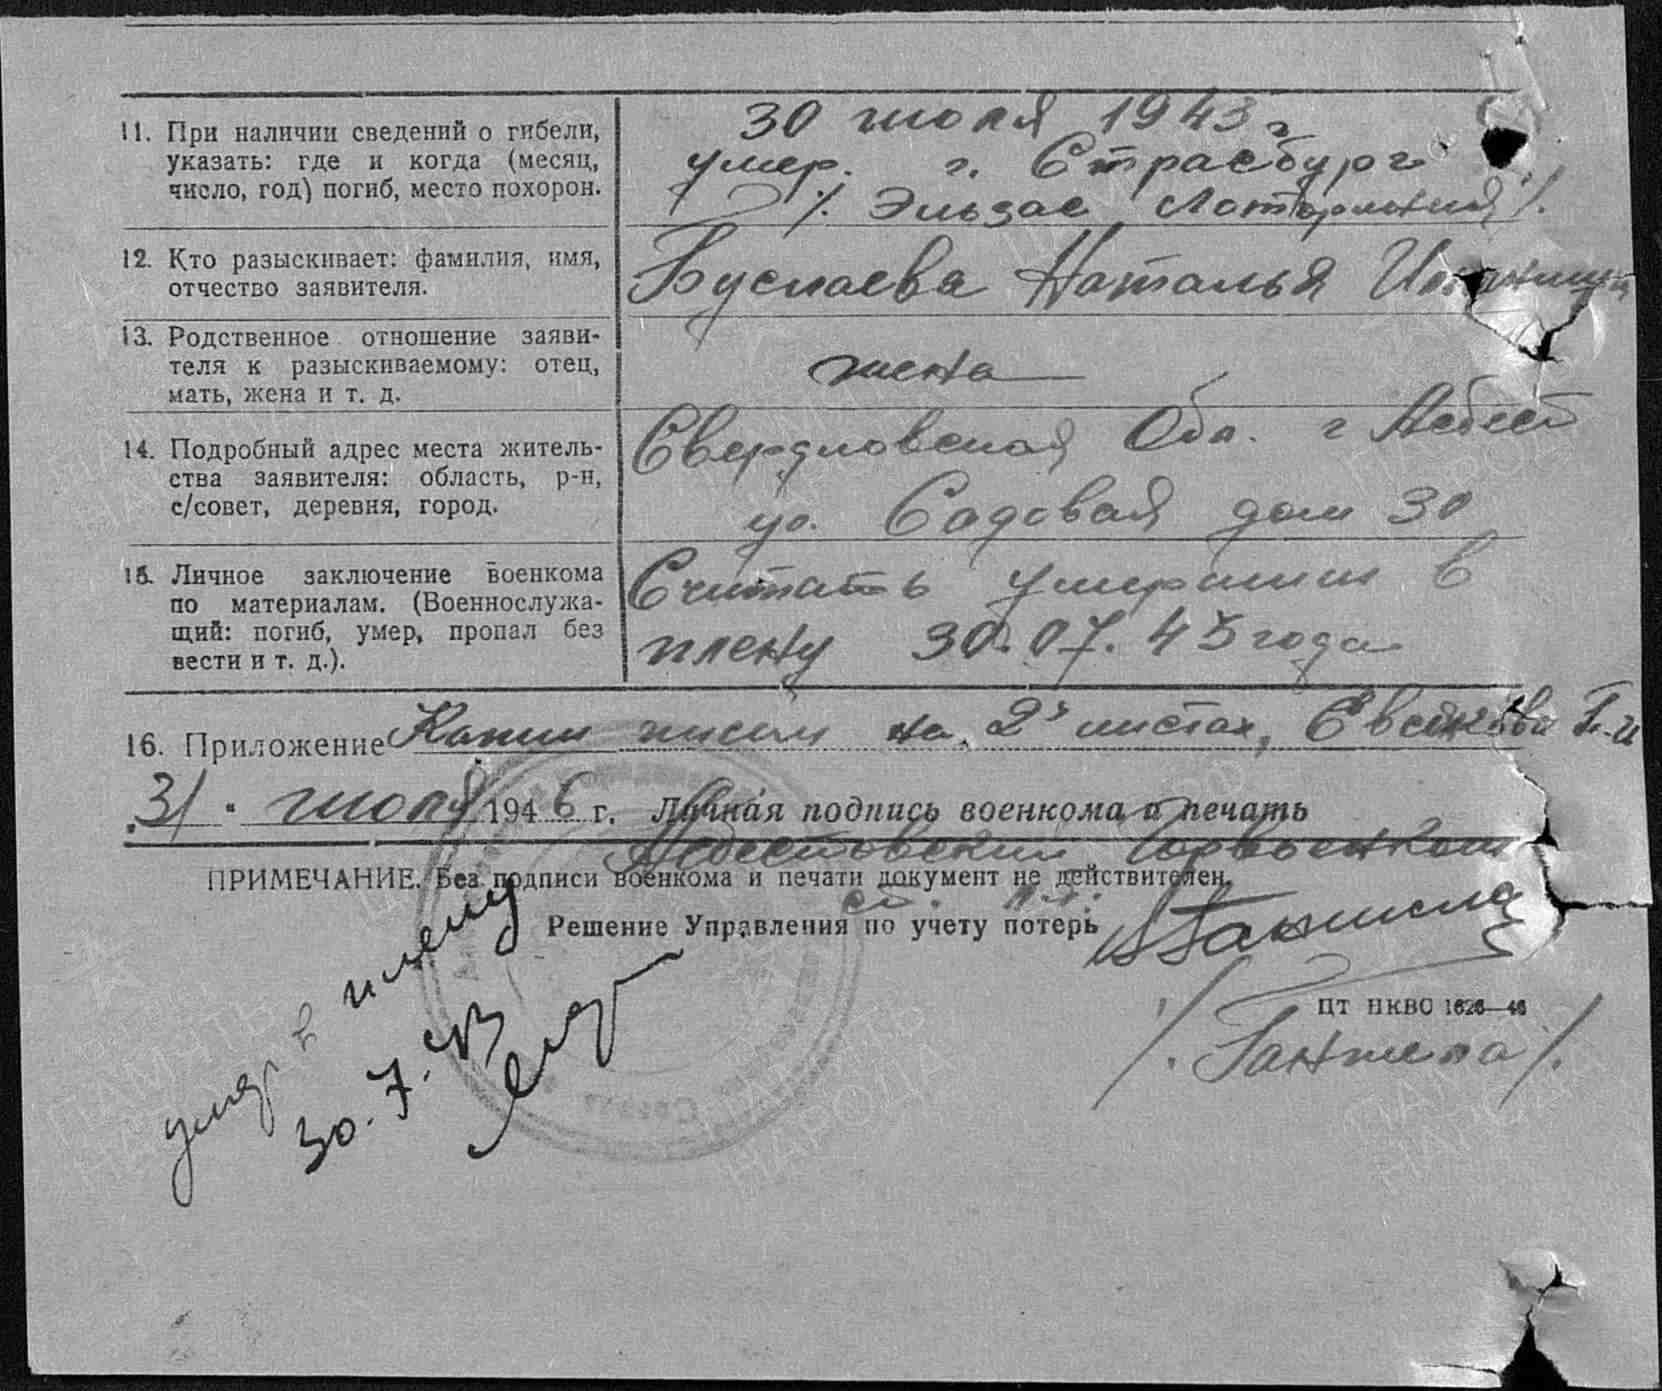 11. При наличии сведений о гибели,
указать: где и когда (месяц,
число, год) погиб, место похорон.
30 июля 1943 г
умер. г. Страсбург
/. Эльзас Лотарингия /.
12. Кто разыскивает: фамилия, имя,
отчество заявителя.
Буслаева Наталья
13. Родственное отношение заяви-
теля к разыскиваемому: отец,
мать, жена и т. д.
жена
14. Подробный адрес места житель-
ства заявителя: область, р-н,
с/совет, деревня, город.
Свердловская Обл. г Асбест
ул. Садовая дом 30
15. Личное заключение военкома
по материалам. (Военнослужа-
щий: погиб, умер, пропал без
вести и т. д.).
Считать умершим в
плену 30.07.43 года
16. Приложение Копии писем на 2х листах,
31. июля 1946 г. Личная подпись военкома и печать
Асбестовский Горвоенком
ПРИМЕЧАНИЕ. Без подписи военкома и печати документ не действителен.
Решение Управления по учету потерь
умер в плену
30.7.43
ЦТ НКВО 1626—46